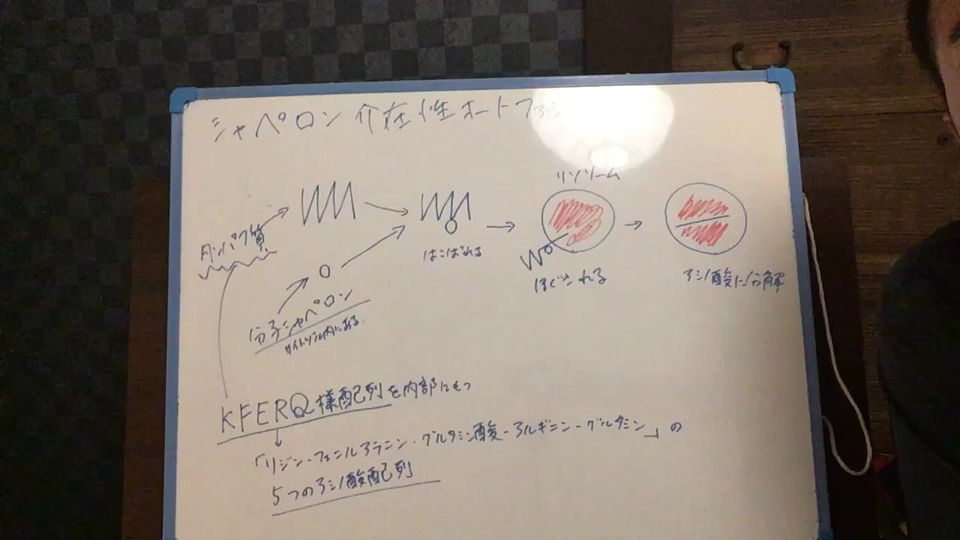 シャペロン介在性オートファジ
リソソーム
タンパク質
はこばれる
ほぐされる
アミノ酸に分解
分子シャペロン
サイトゾル内にある.
KFERQ様配列を内部にもつ
「リジン-フェニルアラニン・グルタミン酸-アルギニン-グルタミン」の
5つのアミノ酸配列